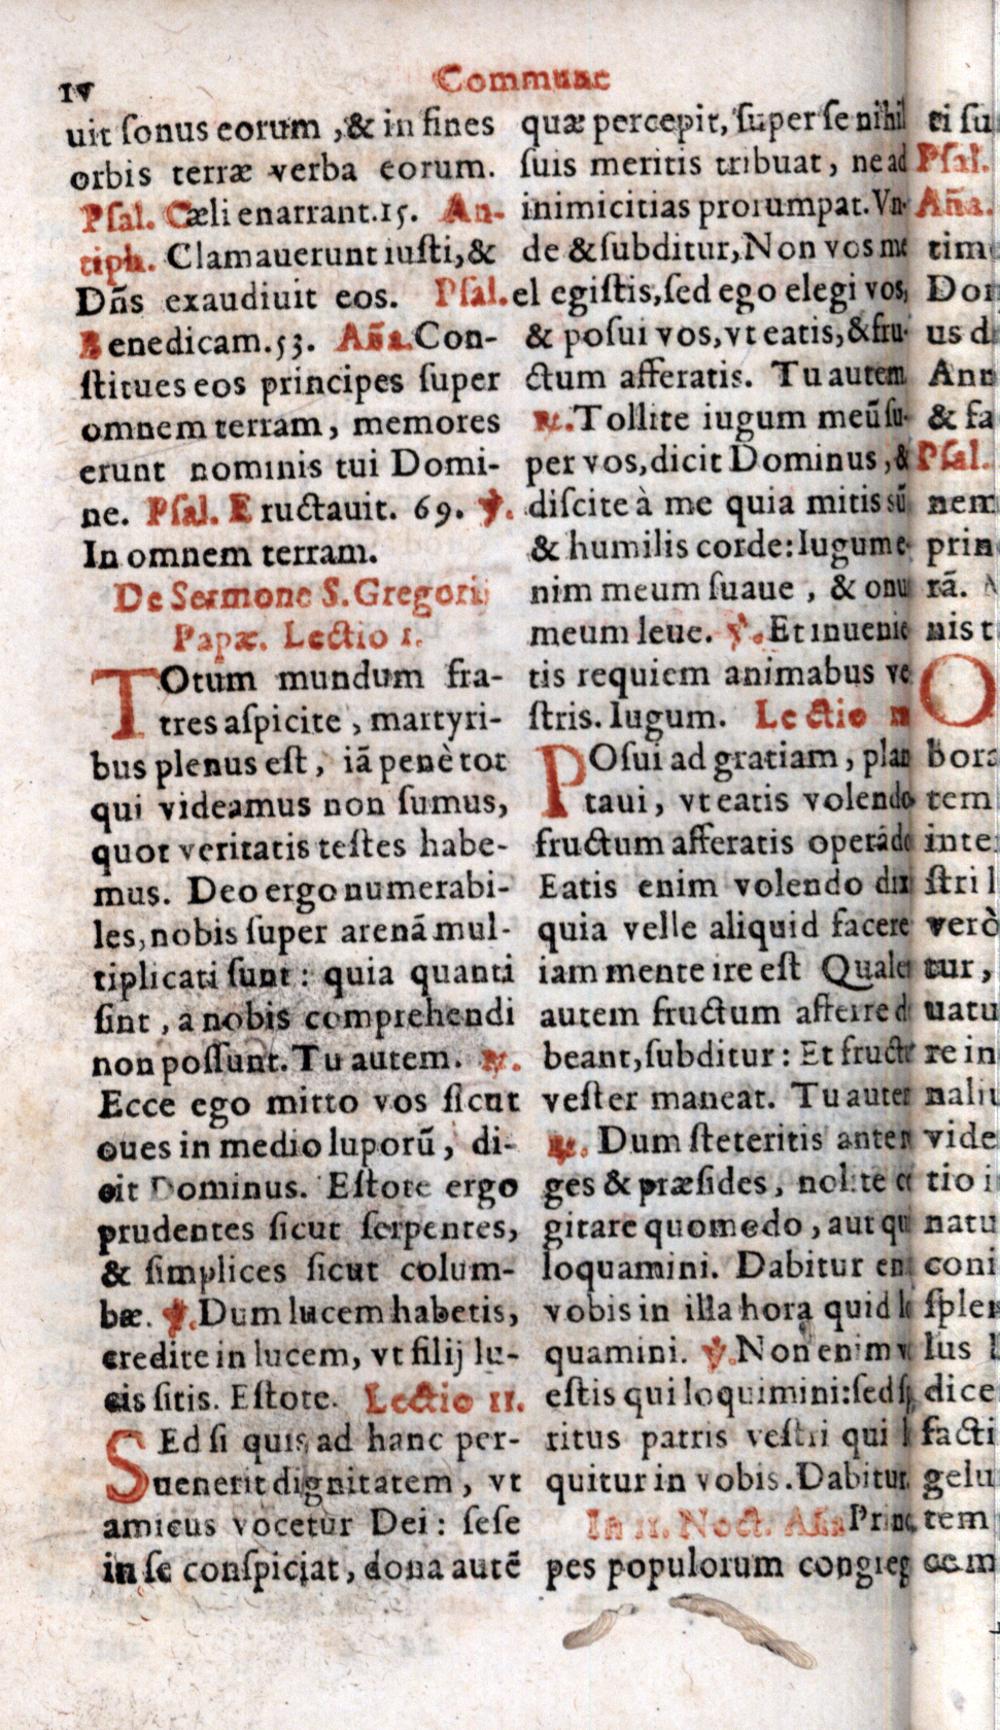 IV
Commune
uit sonus eorum ,& in fines
orbis terræ verba eorum.
Psal. Cæli enarrant.15. An-
tiph. Clamauerunt iusti,&
Dñs exaudiuit eos. Psal.
Benedicam.53. Aña. Con-
stitues eos principes super
omnem terram, memores
erunt nominis tui Domi-
ne. Psal. Eructauit. 69. ℣.
In omnem terram.
De Sermone S. Gregorij
Papæ. Lectio 1.
TOtum mundum fra-
tres aspicite, martyri-
bus plenus est, iã penè tot
qui videamus non sumus,
quot veritatis testes habe-
mus. Deo ergo numerabi-
les, nobis super arenã mul-
tiplicati sunt: quia quanti
sint, a nobis comprehendi
non possunt. Tu autem. ℟.
Ecce ego mitto vos sicut
oues in medio luporũ, di-
cit Dominus. Estote ergo
prudentes sicut serpentes,
& simplices sicut colum-
bæ. ℣. Dum lucem habetis,
credite in lucem, vt filij lu-
cis sitis. Estote. Lectio 11.
SEd si quis ad hanc per-
uenerit dignitatem, vt
amicus vocetur Dei: sese
in se conspiciat, dona autẽ
quæ percepit, super se nihil
suis meritis tribuat, ne ad
inimicitias prorumpat. Vn-
de & subditur, Non vos me
el egistis, sed ego elegi vos,
& posui vos, vt eatis, & fru-
ctum afferatis. Tu autem
℟. Tollite iugum meũ su-
per vos, dicit Dominus, &
discite à me quia mitis sũ
& humilis corde: Iugum e-
nim meum suaue, & onu
meum leue. ℣. Et inuenie
tis requiem animabus ve
stris. Iugum. Lectio
POsui ad gratiam, plan
taui, vt eatis volendo
fructum afferatis operãdo
Eatis enim volendo dixi
quia velle aliquid facere
iam mente ire est Qualem
autem fructum afferre d
beant, subditur: Et fructu
vester maneat. Tu autem
℟. Dum steteritis ante
ges & præsides, nolite co
gitare quomodo, aut qu
loquamini. Dabitur en
vobis in illa hora quid lo
quamini. ℣. Non enim v
estis qui loquimini: sed sp
ritus patris vestri qui l
quitur in vobis. Dabitur.
In 11. Noct. Aña Princ
pes populorum congreg
ti su
Psal.
Aña.
tim
Don
us d
Ann
& fa
Psal.
nem
prin
rã.
nis t
O
bora
tem
inte
stri l
verò
tur,
uatu
re in
nalit
vide
tio i
natu
coni
splen
lus
dice
facti
gelu
tem